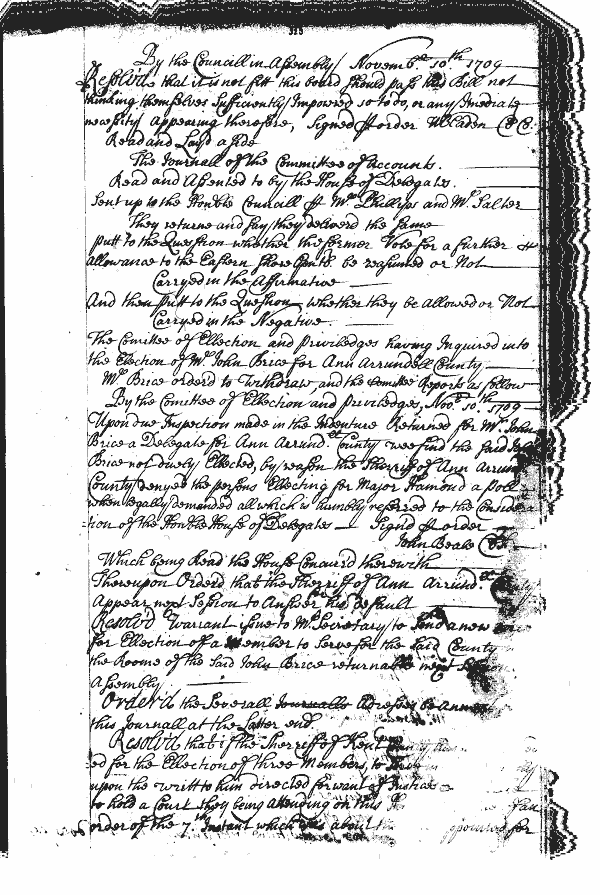 By the Councill in Assembly Novemb.r 10th 1709
Resolvd that it is not fitt this board should pass this Bill not
thinking themselves Sufficiently Impowred so to do, or any Imediate
necessity appearing therefore, Signed p order W Bladen Cl Co:
Read and Layd aside
The Journall of the Committee of accounts.
Read and Assented to by the House of Delegates.
Sent up to the Honble Councill p Mr Phillips and Mr Salter
They returne and say they deliverd the same
putt to the Question whether the former Vote for a further
allowance to the Eastern Shore Gents. be reasumed or Not
Carryed in the Affirmative
And then putt to the Question whether they be Allowed or Not
Carryed in the Negative.
The Comittee of Ellection and priviledges having Inquired into
the Election of Mr John Brice for Ann Arrundell County
Mr Brice orderd to withdraw, and the Comittee Reports as follow
By the Comittee of Ellection and priviledges, Nov.r 10.th 1709
Upon due Inspection made in the Indenture Returned for Mr John
Brice a Delegate for Ann Arrund.ll County wee find the said John
Brice not duely Ellected, by reason the Sherriff of Ann Arrund
County denyed the persons Ellecting for Major Hamond a Poll
when legally demanded all which is humbly referred to the Considera
tion of the Honble House of Delegates Signd p order
John Beale Cl
Which being Read the House Concurd therewith
Thereupon Orderd that the Sherriff of Ann Arrund.ll County
Appear next Session to Answer his default
Resolv'd Warrant issue to Mr Secretary to Send a new
for Ellection of a member to Serve for the Said County
the Roome of the said John Brice returnable next Session
Assembly
Orderd the Severall Journalls Adresses be annex
this Journall at the Latter end
Resolvd that if the Sherriff of Kent County
ed for the Ellection of three Members, to
upon the writt to him directed for want of Justices
to hold a Court they being attending on this
order of the 7.th Instant which was about for